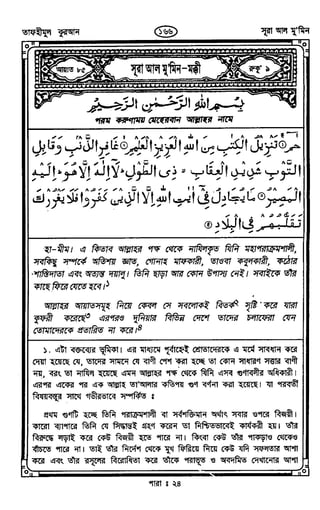 তাফহীমুল কুরআন
১৬৬
সূরা আল মু'মিন
আয়াত ৮৫
সূরা আল মু'মিন-মক্কী
রুকূ' ৯
بِسْمِ اللهِ الرَّحْمٰنِ الرَّحِيْمِ
পরম করুণাময় মেহেরবান আল্লাহর নামে
حٰمٓ ۚ تَنْزِيْلُ الْكِتٰبِ مِنَ اللهِ الْعَزِيْزِ الْعَلِيْمِ ۙ غَافِرِ الذَّنْۢبِ وَقَابِلِ
التَّوْبِ شَدِيْدِ الْعِقَابِ ۙ ذِى الطَّوْلِ ۗ لَآ اِلٰهَ اِلَّا هُوَ ۗ اِلَيْهِ
الْمَصِيْرُ ۝ مَا يُجَادِلُ فِىْٓ اٰيٰتِ اللهِ اِلَّا الَّذِيْنَ كَفَرُوْا فَلَا يَغْرُرْكَ
تَقَلُّبُهُمْ فِى الْبِلَادِ ۝
হা-মীম। এ কিতাব আল্লাহর পক্ষ থেকে নাযিলকৃত যিনি মহাপরাক্রমশালী,
সবকিছু সম্পর্কে অতিশয় জ্ঞাত, গোনাহ মাফকারী, তাওবা কবুলকারী, কঠোর
শাস্তিদাতা এবং অত্যন্ত দয়ালু। তিনি ছাড়া আর কোন উপাস্য নেই। সবাইকে তাঁর
কাছে ফিরে যেতে হবে।১
আল্লাহর আয়াতসমূহ নিয়ে কেবল সে সবলোকই বিতর্ক২ সৃষ্টি করে যারা
কুফরী করেছে৩ এরপরও দুনিয়ার বিভিন্ন দেশে তাদের চলাফেরা যেন
তোমাদেরকে প্রতারিত না করে।৪
১. এটা বক্তব্যের ভূমিকা। এর মাধ্যমে পূর্বাহ্নেই শ্রোতাদেরকে এ মর্মে সাবধান করে
দেয়া হয়েছে যে, তাদের সামনে যে বাণী পেশ করা হচ্ছে তা কোন সাধারণ সত্তার বাণী
নয়, বরং তা নাযিল হয়েছে এমন আল্লাহর পক্ষ থেকে যিনি এসব গুণাবলীর অধিকারী।
এরপর একের পর এক আল্লাহ তা'আলার কতিপয় গুণ বর্ণনা করা হয়েছে। যা পরবর্তী
বিষয়বস্তুর সাথে গভীরভাবে সম্পর্কিত ঃ
প্রথম গুণটি হচ্ছে তিনি পরাক্রমশালী বা সর্বশক্তিমান অর্থাৎ সবার ওপরে বিজয়ী।
কারো ব্যাপারে তিনি যে সিদ্ধান্তই গ্রহণ করেন তা নিশ্চিতভাবেই কার্যকরী হয়। তাঁর
বিরুদ্ধে লড়াই করে কেউ বিজয়ী হতে পারে না। কিংবা কেউ তাঁর পাকড়াও থেকেও
বাঁচতে পারে না। তাই তাঁর নির্দেশ থেকে মুখ ফিরিয়ে নিয়ে কেউ যদি সফলতার আশা
করে এবং তাঁর রসূলের বিরোধিতা করে তাঁকে পরাভূত ও অবদমিত দেখানোর আশা
পারা ঃ ২৪